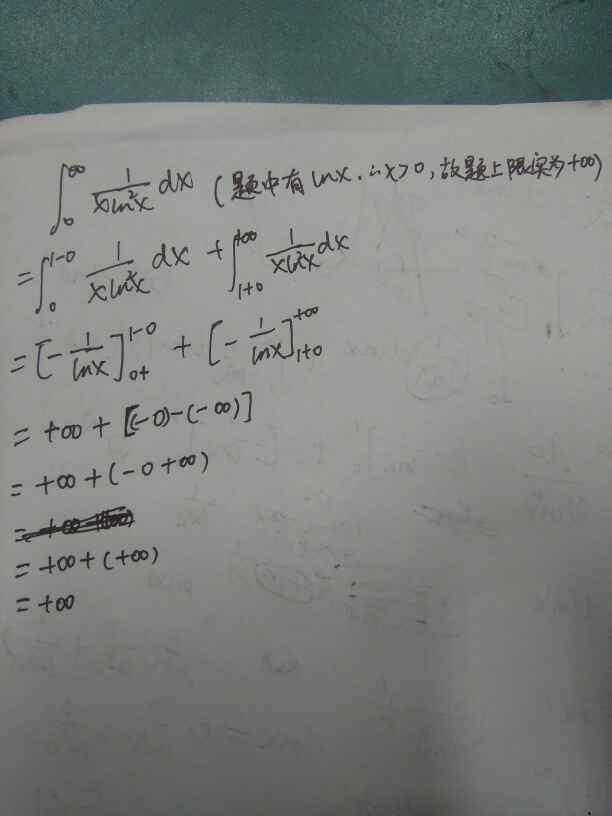 ∫₀^∞ 1/(xln²x) dx (题中有lnx,∴x>0,故题上限实为+∞)
=∫₀^(1-0) 1/(xln²x) dx + ∫₁₊₀^(+∞) 1/(xln²x) dx
=[-1/lnx]₀₊^(1-0) + [-1/lnx]₁₊₀^(+∞)
= +∞ + [(-0)-(-∞)]
= +∞ + (-0+∞)
= +∞ + (+∞)
= +∞